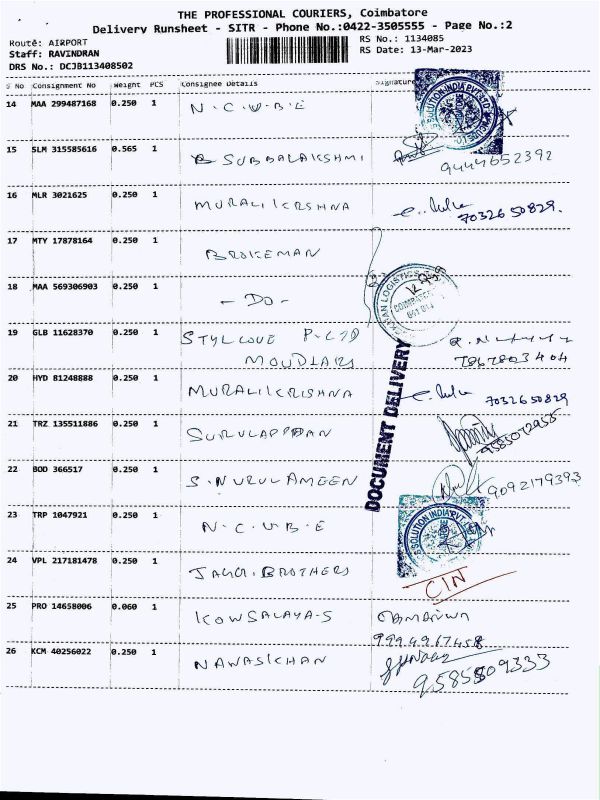 THE PROFESSIONAL COURIERS, Coimbatore
Delivery Runsheet - SITR - Phone No.:0422-3505555 - Page No.:2
Route: AIRPORT
RS No.: 1134085
Staff: RAVINDRAN
RS Date: 13-Mar-2023
DRS No.: DCJB113408502
S No Consignment No Weight PCS Consignee Details Signature
14 MAA 299487168 0.250 1 N.C.U.B.E
SOLUTION INDIA PVT LTD
15 SLM 315585616 0.565 1 B SUBBALAKSHMI 9444652392
16 MLR 3021625 0.250 1 MURALIKRISHNA 7032650829.
17 MTY 17878164 0.250 1 BROKEMAN
18 MAA 569306903 0.250 1 - DO -
LOGISTICS
COIMBATORE
641 014
19 GLB 11628370 0.250 1 STYLLOVE P-LTD
MOUDLARS 7867803404
DOCUMENT DELIVERY
20 HYD 81248888 0.250 1 MURALIKRISHNA 7032650829
21 TRZ 135511886 0.250 1 SURULAPPAN 9585072955
22 BOD 366517 0.250 1 S.NURULAMEEN 9092179393
23 TRP 1047921 0.250 1 N.C.U.B.E
SOLUTION INDIA PVT LTD
24 VPL 217181478 0.250 1 BROTHERS
CIN
25 PRO 14658006 0.060 1 KOWSALAYA-S
9994967458
26 KCM 40256022 0.250 1 NAWASKHAN
9585809333